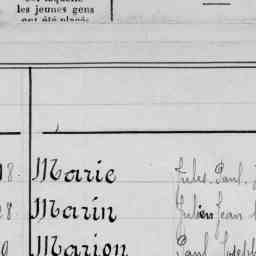 les jeunes gens
ont été placés
8. Marie Jules Paul
28 Marin Julien Jean
9 Marion Paul Joseph